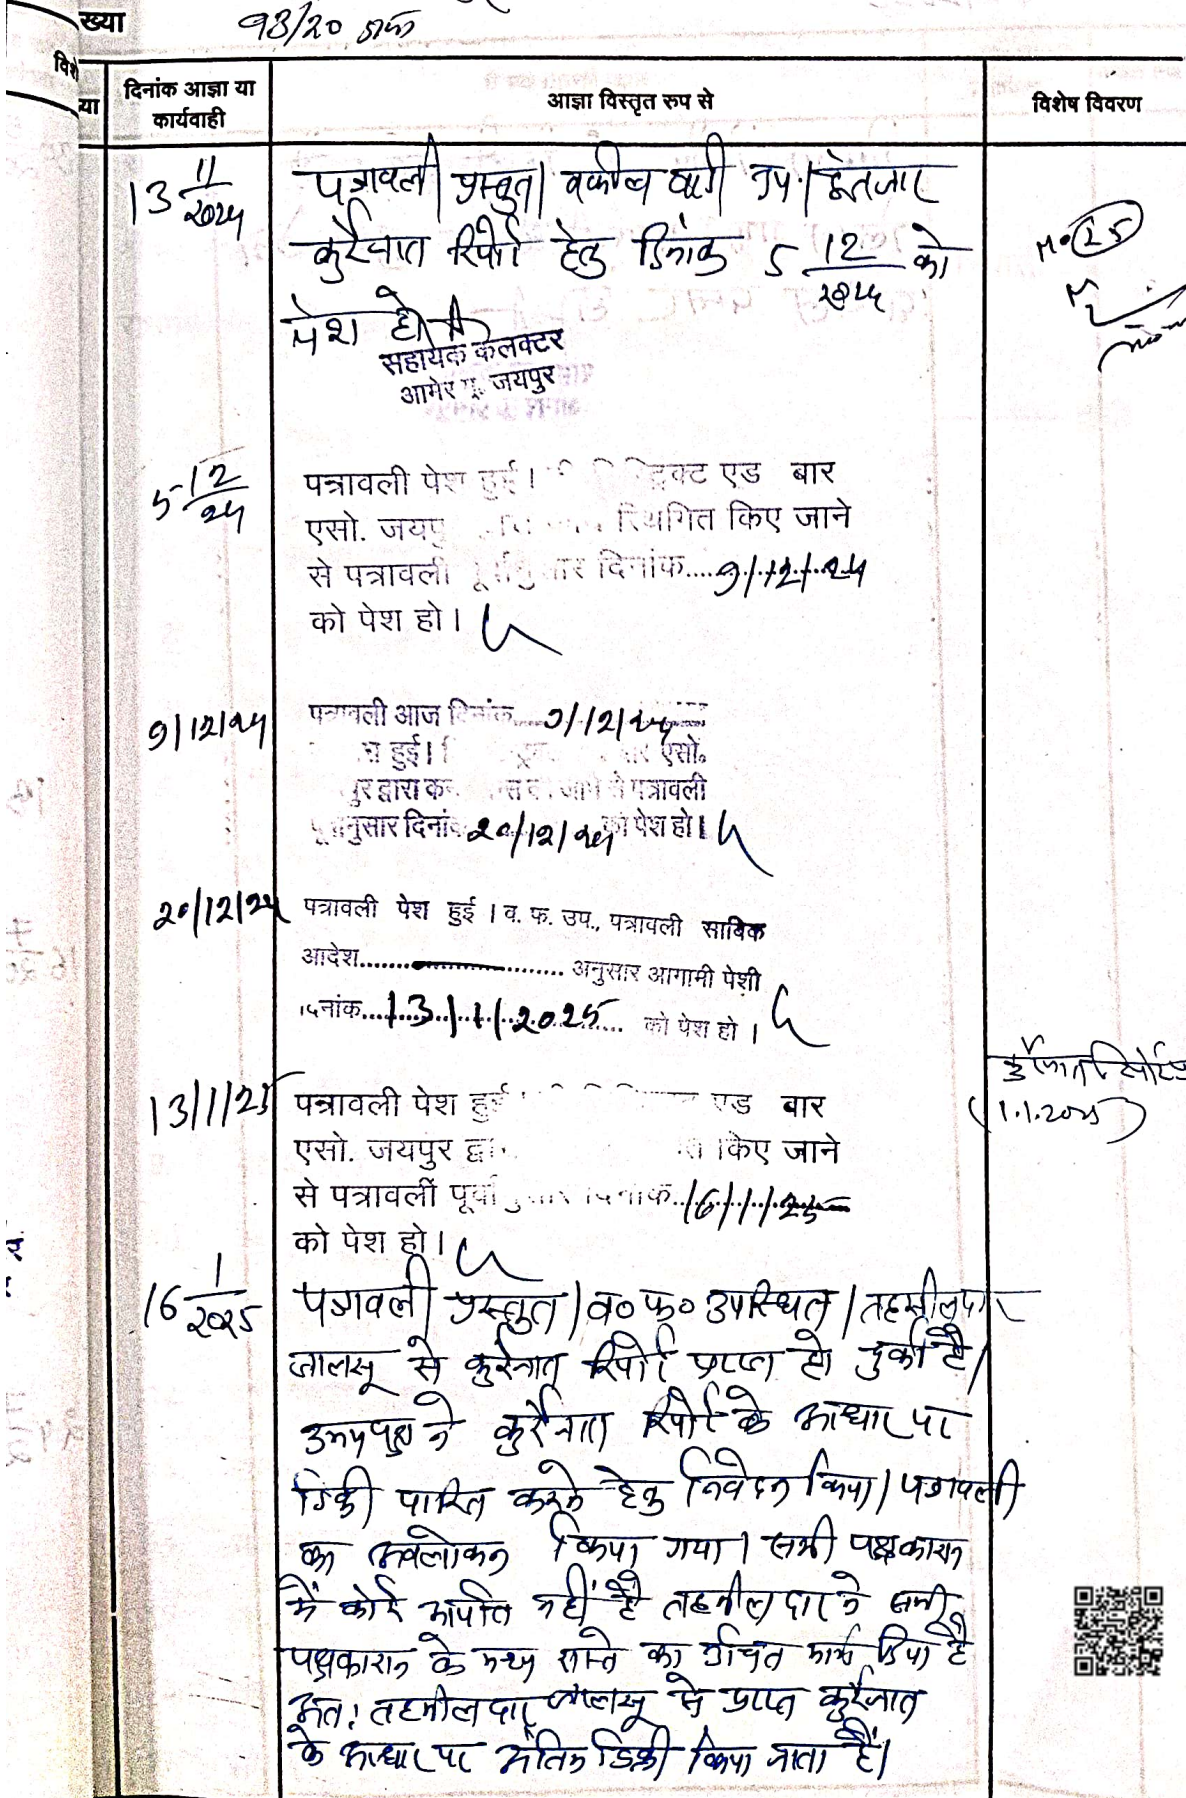 ख्या 93/20
विशे
या
दिनांक आज्ञा या कार्यवाही
आज्ञा विस्तृत रुप से
विशेष विवरण
13 11/2024
पत्रावली प्रस्तुत। वकील वादी उप। इंतजार
कुर्रेजात रिपोर्ट हेतु दिनांक 5 12/2024 को
पेश हो
सहायक कलक्टर
आमेर जयपुर
5 12/24
पत्रावली पेश हुई। एड बार
एसो. जयपु स्थगित किए जाने
से पत्रावली दिनांक....9/12/24
को पेश हो।
9/12/24
पत्रावली आज दिनांक....9/12/24
हुई। एसो.
द्वारा पत्रावली
नुसार दिनांक 20/12/24 को पेश हो।
20/12/24
पत्रावली पेश हुई । व. फ. उप., पत्रावली साबिक
आदेश.................... अनुसार आगामी पेशी
दिनांक...13/1/2025.... को पेश हो ।
कुर्रेजात रिपोर्ट
(1.1.2025)
13/1/25
पत्रावली पेश हुई एड बार
एसो. जयपुर द्वा किए जाने
से पत्रावली दिनांक..16/1/25
को पेश हो।
16 1/2025
पत्रावली प्रस्तुत। व० फ० उपस्थित। तहसीलदार
जालसू से कुर्रेजात रिपोर्ट प्राप्त हो चुकी है।
उभयपक्ष ने कुर्रेजात रिपोर्ट के आधार पर
डिक्री पारित करने हेतु निवेदन किया। पत्रावली
का अवलोकन किया गया। सभी पक्षकारान
में कोई आपत्ति नहीं है तहसीलदार ने सभी
पक्षकारान के मध्य रास्ते का उचित मार्ग दिया है
अत: तहसीलदार जालसू से प्राप्त कुर्रेजात
के आधार पर अंतिम डिक्री किया जाता है।